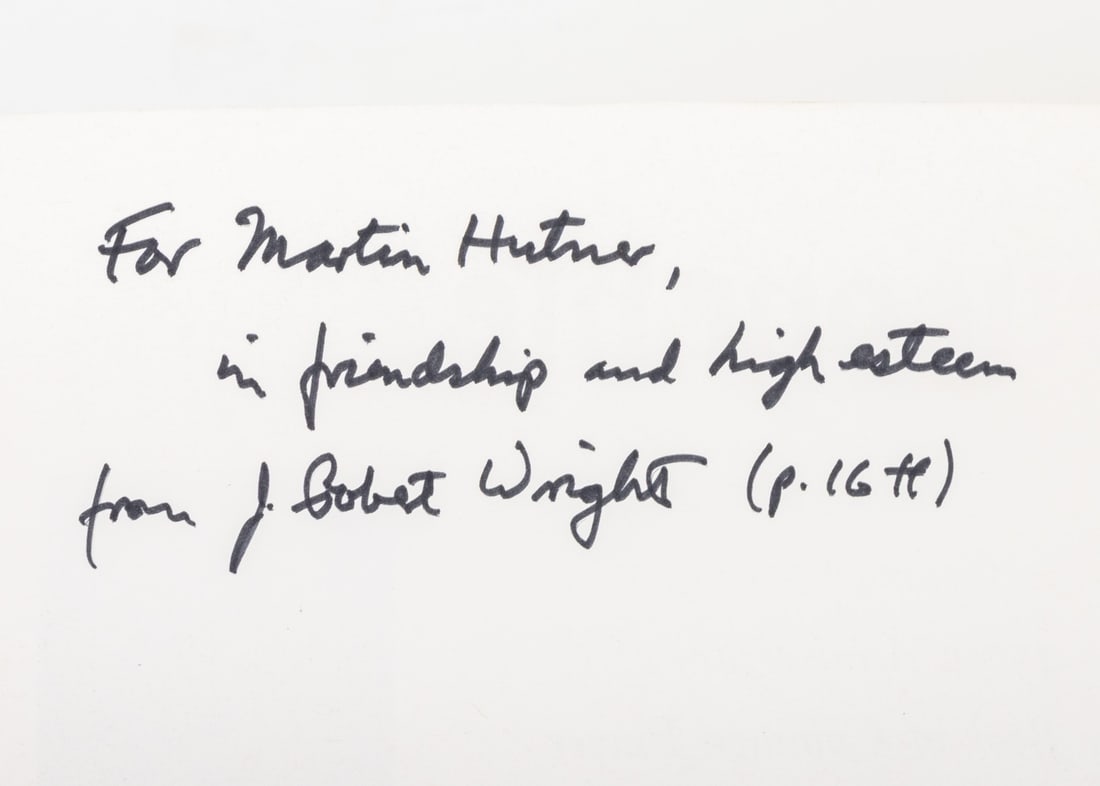 For Martin Hutner,
in friendship and high esteem
from J. Robert Wright (p. 16 ff)